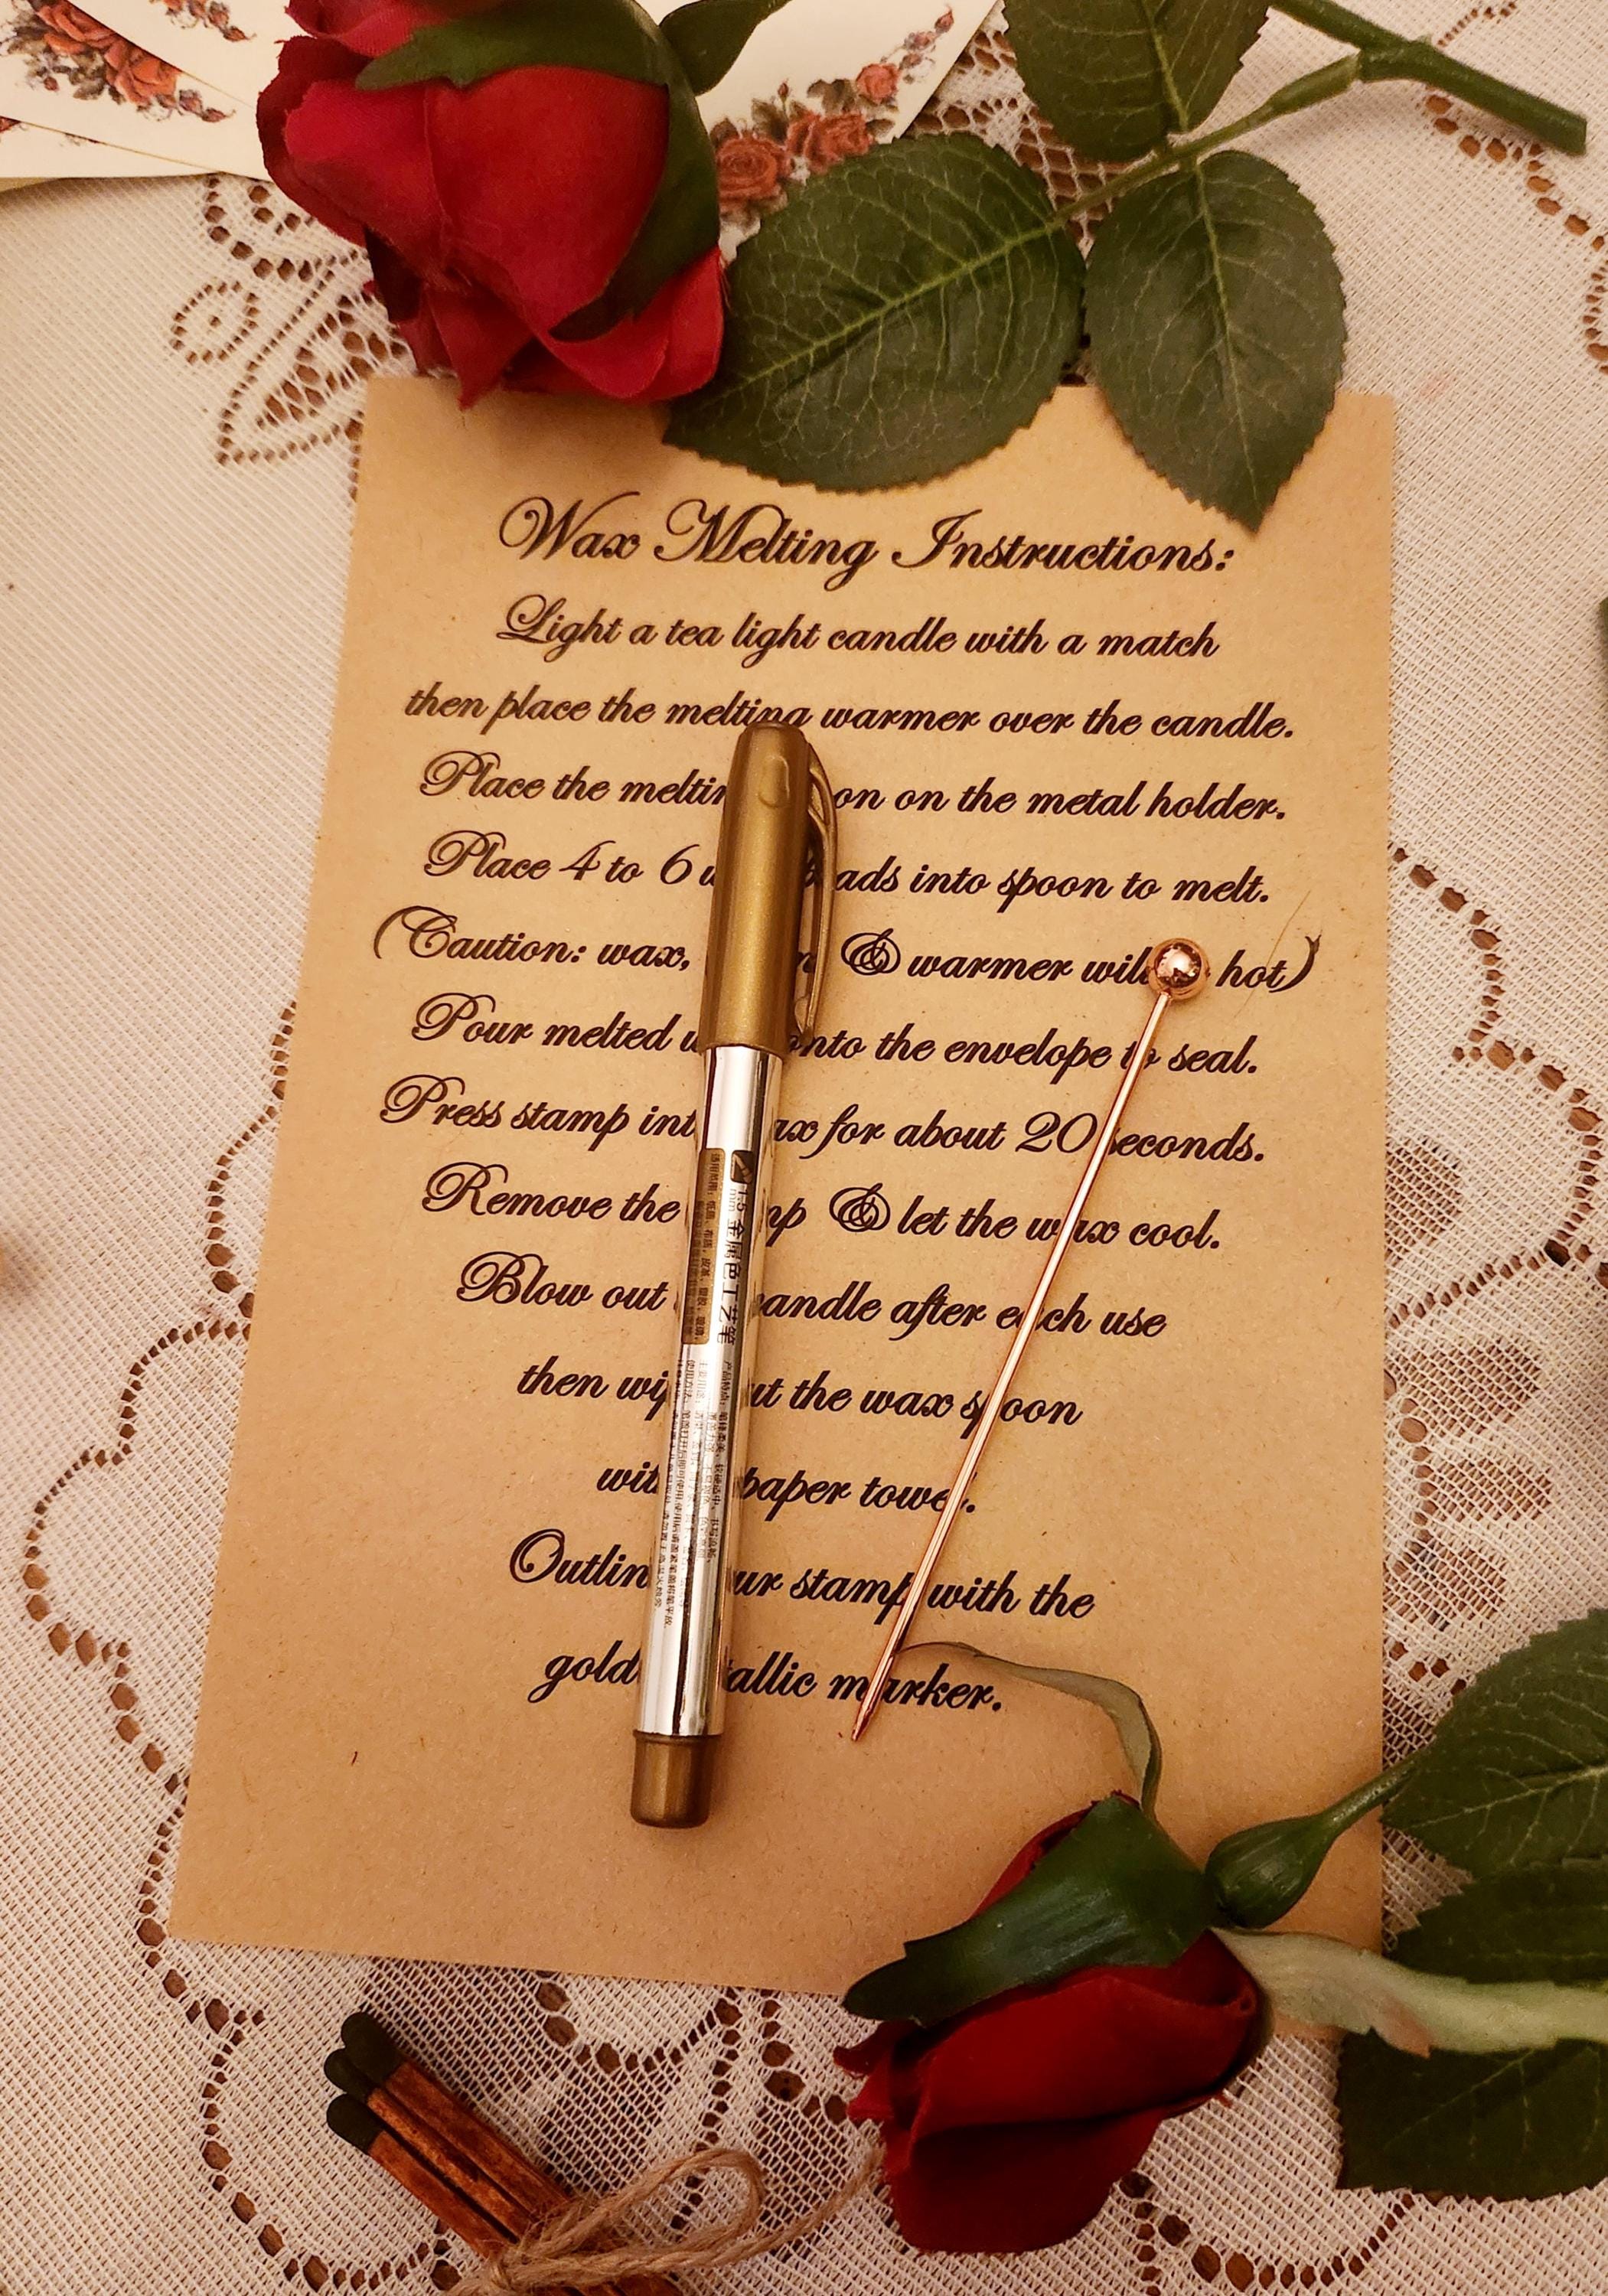 Wax Melting Instructions:
Light a tea light candle with a match
then place the melting warmer over the candle.
Place the melting on on the metal holder.
Place 4 to 6 w ads into spoon to melt.
(Caution: wax, n & warmer will hot)
Pour melted w onto the envelope to seal.
Press stamp int ax for about 20 seconds.
Remove the mp & let the wax cool.
Blow out candle after each use
then wip ut the wax spoon
with paper towel.
Outlin ur stamp with the
gold tallic marker.
1.5 mm 金属色工艺笔